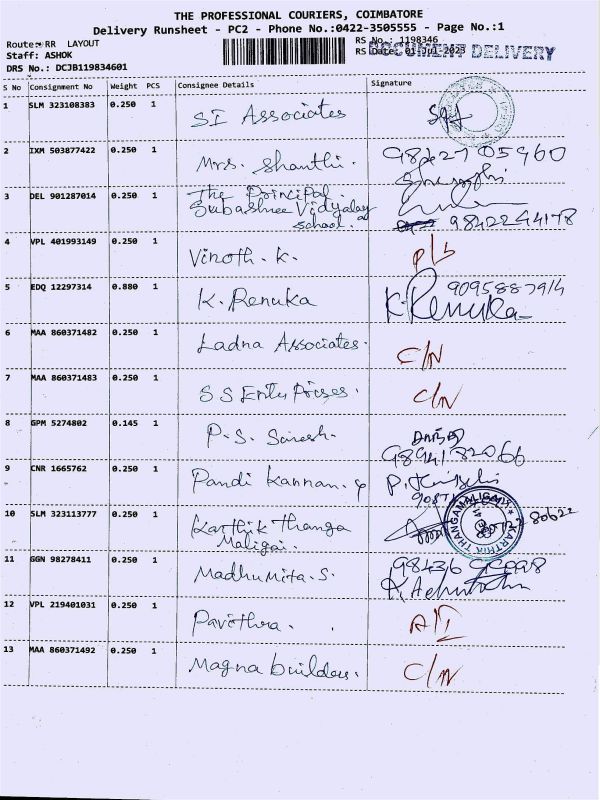 THE PROFESSIONAL COURIERS, COIMBATORE
Delivery Runsheet - PC2 - Phone No.:0422-3505555 - Page No.:1
Route: RR LAYOUT
RS No.: 1198346
Staff: ASHOK
RS Date: 01-Jul-2023
DOCUMENT DELIVERY
DRS No.: DCJB119834601
S No Consignment No Weight PCS Consignee Details Signature
1 SLM 323108383 0.250 1 SI Associates
2 IXM 503877422 0.250 1 Mrs. Shanthi.
3 DEL 901287014 0.250 1 The Principal.
Subashree Vidyalay
School.
9842244178
4 VPL 401993149 0.250 1 Vinoth. K.
5 EDQ 12297314 0.880 1 K. Renuka K. Renuka
6 MAA 860371482 0.250 1 Ladna Associates. C/N
7 MAA 860371483 0.250 1 S S Enterprises. C/N
8 GPM 5274802 0.145 1 P.S.
9894182066
9 CNR 1665762 0.250 1 Pandi Kannan.
10 SLM 323113777 0.250 1 Karthik Thanga
Maligai.
KARTHIK THANGAMALIGAI
11 GGN 98278411 0.250 1 Madhumita. S.
12 VPL 219401031 0.250 1 Pavithra.
13 MAA 860371492 0.250 1 Magna builders. C/N